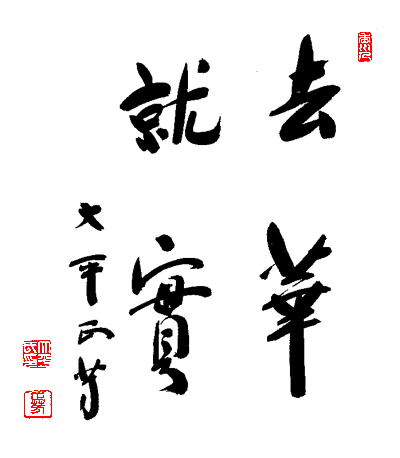 去華
就實
大平正芳